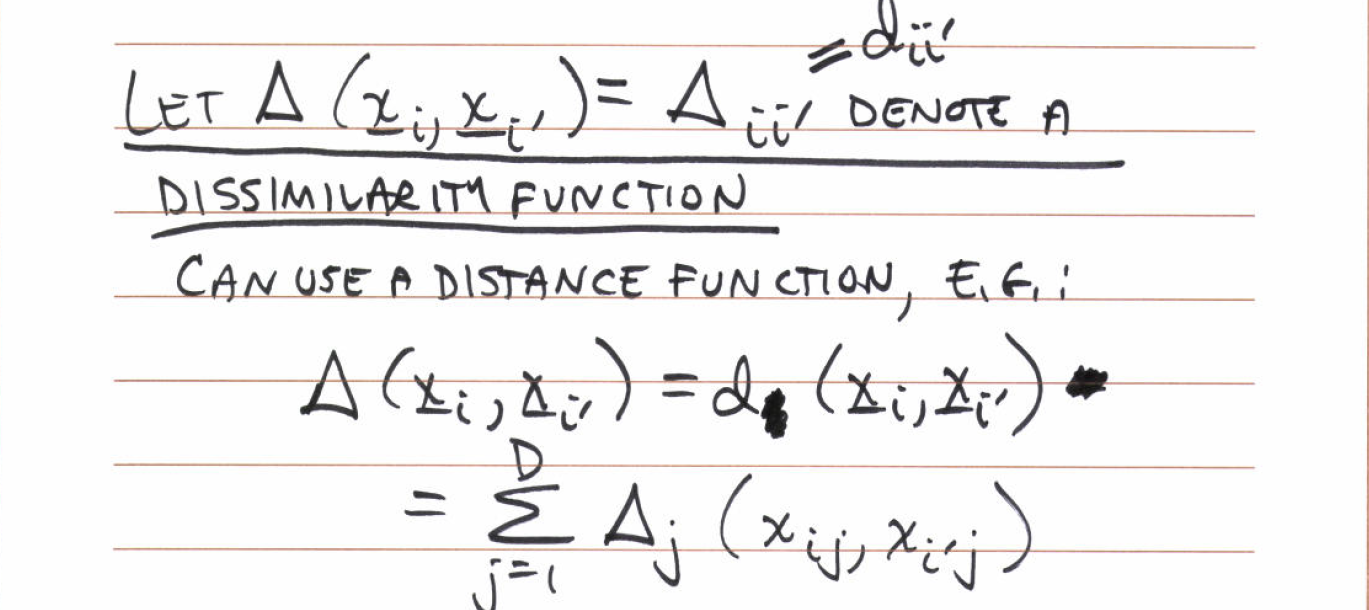 = dᵢᵢ′
LET Δ (x̲ᵢ, x̲ᵢ′) = Δᵢᵢ′ DENOTE A
DISSIMILARITY FUNCTION
CAN USE A DISTANCE FUNCTION, E.G.:
Δ (x̲ᵢ, x̲ᵢ′) = d (x̲ᵢ, x̲ᵢ′)
= ∑_{j=1}^{D} Δⱼ (xᵢⱼ, xᵢ′ⱼ)